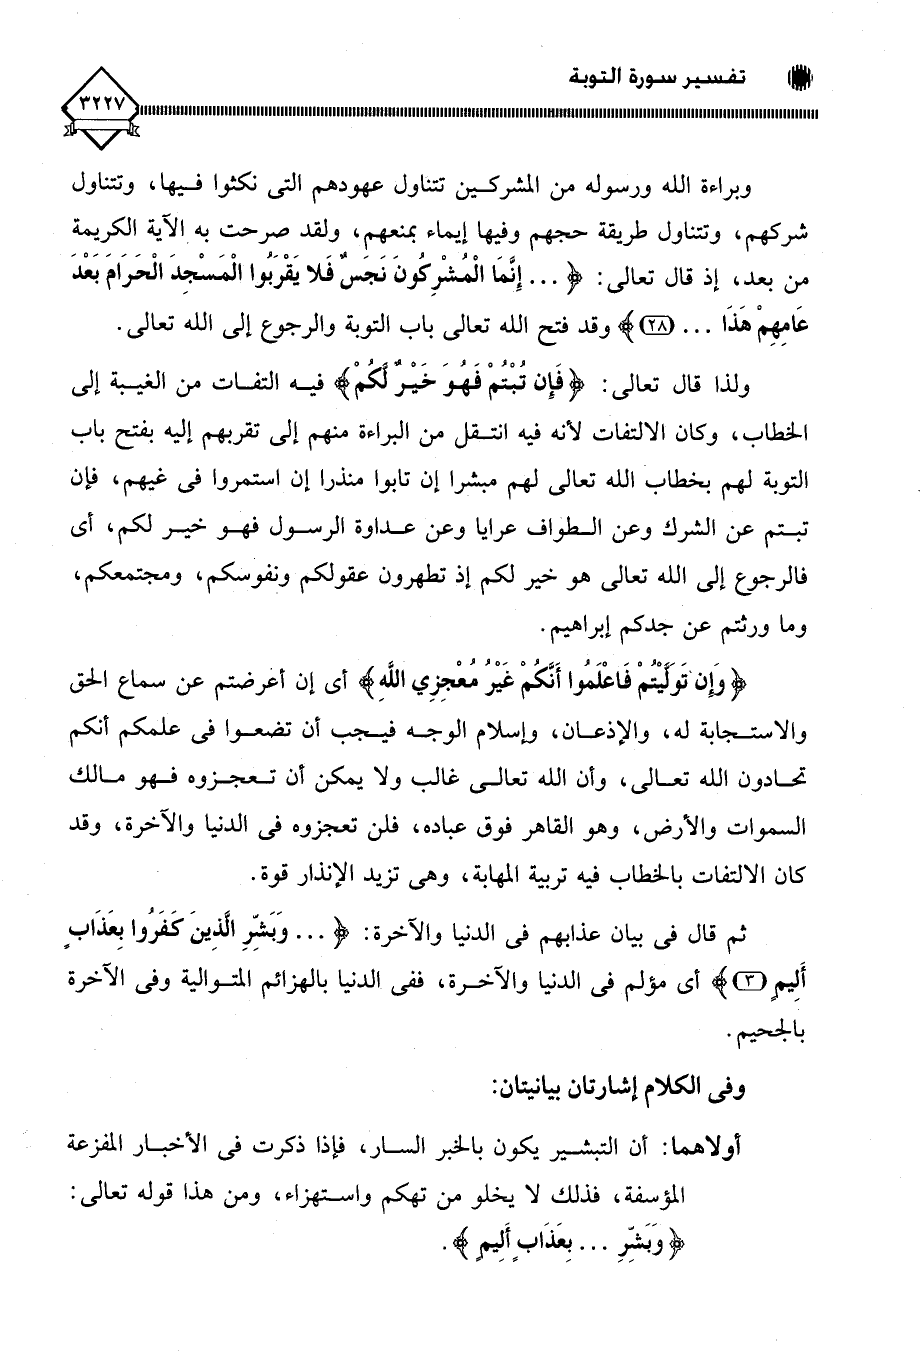 تفسير سورة التوبة
٣٢٢٧
وبراءة الله ورسوله من المشركين تتناول عهودهم التى نكثوا فيها، وتتناول
شركهم، وتتناول طريقة حجهم وفيها إيماء بمنعهم، ولقد صرحت به الآية الكريمة
من بعد، إذ قال تعالى: ﴿ ... إِنَّمَا الْمُشْرِكُونَ نَجَسٌ فَلا يَقْرَبُوا الْمَسْجِدَ الْحَرَامَ بَعْدَ
عَامِهِمْ هَذَا ... (٢٨)﴾ وقد فتح الله تعالى باب التوبة والرجوع إلى الله تعالى.
ولذا قال تعالى: ﴿فَإِن تُبْتُمْ فَهُوَ خَيْرٌ لَّكُمْ﴾ فيه التفات من الغيبة إلى
الخطاب، وكان الالتفات لأنه فيه انتقل من البراءة منهم إلى تقربهم إليه بفتح باب
التوبة لهم بخطاب الله تعالى لهم مبشرا إن تابوا منذرا إن استمروا فى غيهم، فإن
تبتم عن الشرك وعن الطواف عرايا وعن عداوة الرسول فهو خير لكم، أى
فالرجوع إلى الله تعالى هو خير لكم إذ تطهرون عقولكم ونفوسكم، ومجتمعكم،
وما ورثتم عن جدكم إبراهيم.
﴿وَإِن تَوَلَّيْتُمْ فَاعْلَمُوا أَنَّكُمْ غَيْرُ مُعْجِزِي اللَّهِ﴾ أى إن أعرضتم عن سماع الحق
والاستجابة له، والإذعان، وإسلام الوجه فيجب أن تضعوا فى علمكم أنكم
تحادون الله تعالى، وأن الله تعالى غالب ولا يمكن أن تعجزوه فهو مالك
السموات والأرض، وهو القاهر فوق عباده، فلن تعجزوه فى الدنيا والآخرة، وقد
كان الالتفات بالخطاب فيه تربية المهابة، وهى تزيد الإنذار قوة.
ثم قال فى بيان عذابهم فى الدنيا والآخرة: ﴿ ... وَبَشِّرِ الَّذِينَ كَفَرُوا بِعَذَابٍ
أَلِيمٍ (٣)﴾ أى مؤلم فى الدنيا والآخرة، ففى الدنيا بالهزائم المتوالية وفى الآخرة
بالجحيم.
وفى الكلام إشارتان بيانيتان:
أولاهما: أن التبشير يكون بالخبر السار، فإذا ذكرت فى الأخبار المفزعة
المؤسفة، فذلك لا يخلو من تهكم واستهزاء، ومن هذا قوله تعالى:
﴿ وَبَشِّرِ ... بِعَذَابٍ أَلِيمٍ ﴾.